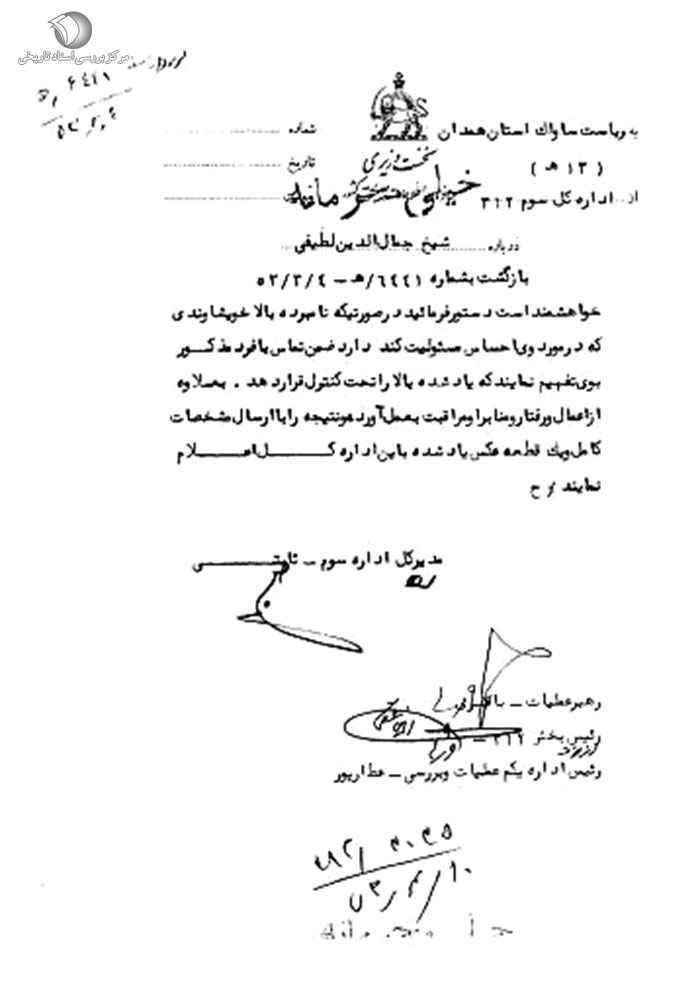 مرکز بررسی اسناد تاریخی
۶۴۴۱
به ریاست ساواک استان همدان
شماره
نخست وزیری
( ۱۳ هـ )
تاریخ
از .. اداره کل سوم ۳۱۲
خیلی محرمانه
درباره شیخ جمال‌الدین لطیفی ..
بازگشت بشماره ۶۴۴۱/هـ – ۵۲/۳/۴
خواهشمند است دستورفرمائید درصورتیکه نامبرده بالا خویشاوندی
که درمورد وی احساس مسئولیت کند دارد ضمن تماس با فرد مذکور
بوی تفهیم نمایند که یاد شده بالا را تحت کنترل قرار دهد . بعلاوه
از اعمال و رفتار ومنابر او مراقبت بعمل آورده ونتیجه را با ارسال مشخصات
کامل ویک قطعه عکس یاد شده باین اداره کل اعلام
نمایند / ح
مدیرکل اداره سوم – ثابتی
رهبرعملیات –
رئیس بخش ۳۱۲ –
رئیس اداره یکم عملیات وبررسی – عطارپور